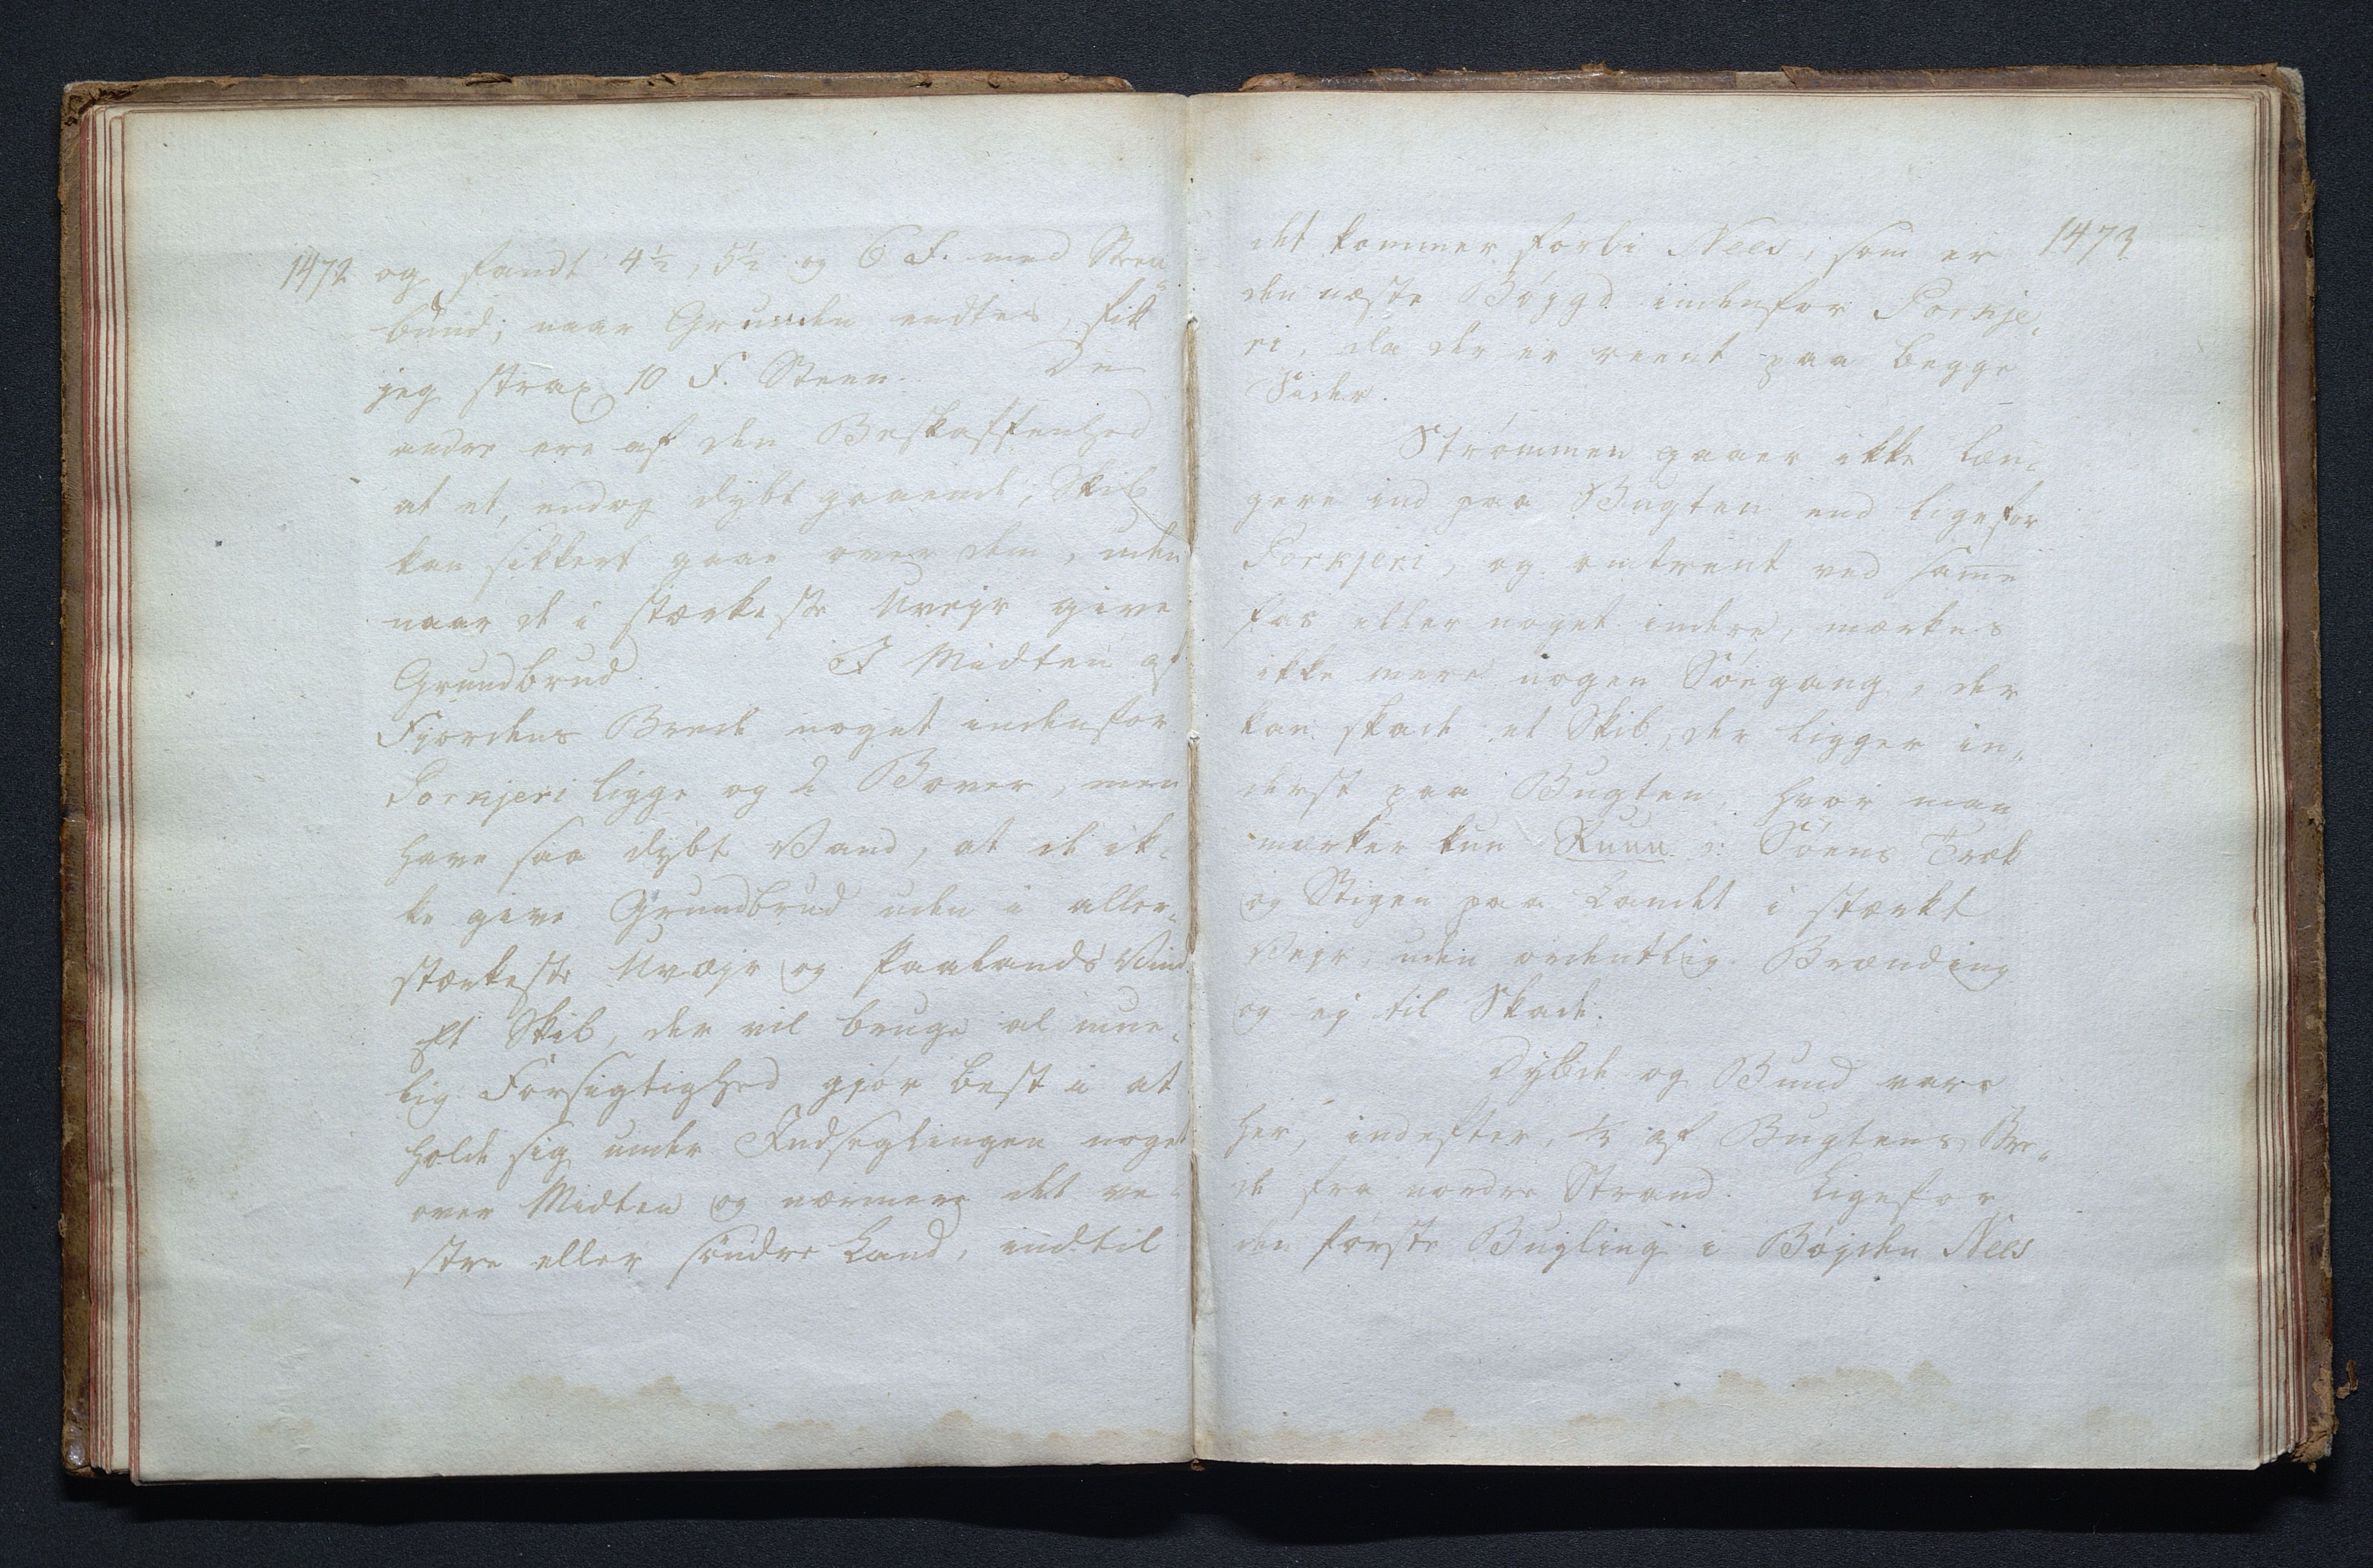 1472
og fandt 4½, 5½ og 6 F. med Steen
bund; naar Grunden endtes, fik
jeg strax 10 F. Steen. De
andre ere af den Beskaffenhed
at et, endog dybt gaaende, Skib
kan sikkert gaae over dem, uden
naar de i stærkeste Uvejr give
Grundbrud. I Midten af
Fjordens Brede noget indenfor
Porkjeri ligge og 2 Bover, men
have saa dybt Vand, at de ik-
ke give Grundbrud uden i aller-
stærkeste Uvæjr og Paalands Vind.
Et Skib, der vil bruge al mue-
lig Forsigtighed gjør best i at
holde sig under Indseglingen noget
over Midten og nærmere det ve-
stre eller søndre Land, indtil
1473
det kommer forbi Nees, som er
den næste Bøygd indenfor Porkje-
ri, da der er reent paa begge
Sider.
Strømmen gaaer ikke læn-
gere ind paa Bugten end ligefor
Porkjeri, og omtrent ved samme
eller noget indre, mærkes
ikke mere nogen Søegang, der
kan skade et Skib, der ligger in-
derst paa Bugten, hvor man
mærker kun Ruun ɔ: Søens Træk
og Stigen paa Landet i stærkt
Vejr, uden ordentlig Brænding
og ej til Skade.
Dybde og Bund vare
her, indefter, af Bugtens Bre-
de fra nordre Strand. Ligefor
den første Bygling i Bøjden Nees